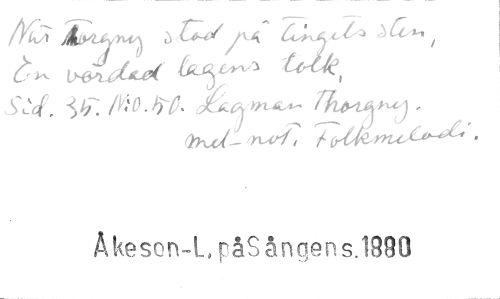 När Thorgny stod på tingets sten,
En vördad lagens tolk,
Sid. 35. N:o. 50. Lagman Thorgny.
mel-not. Folkmelodi.
Åkeson-L, påSångens.1880